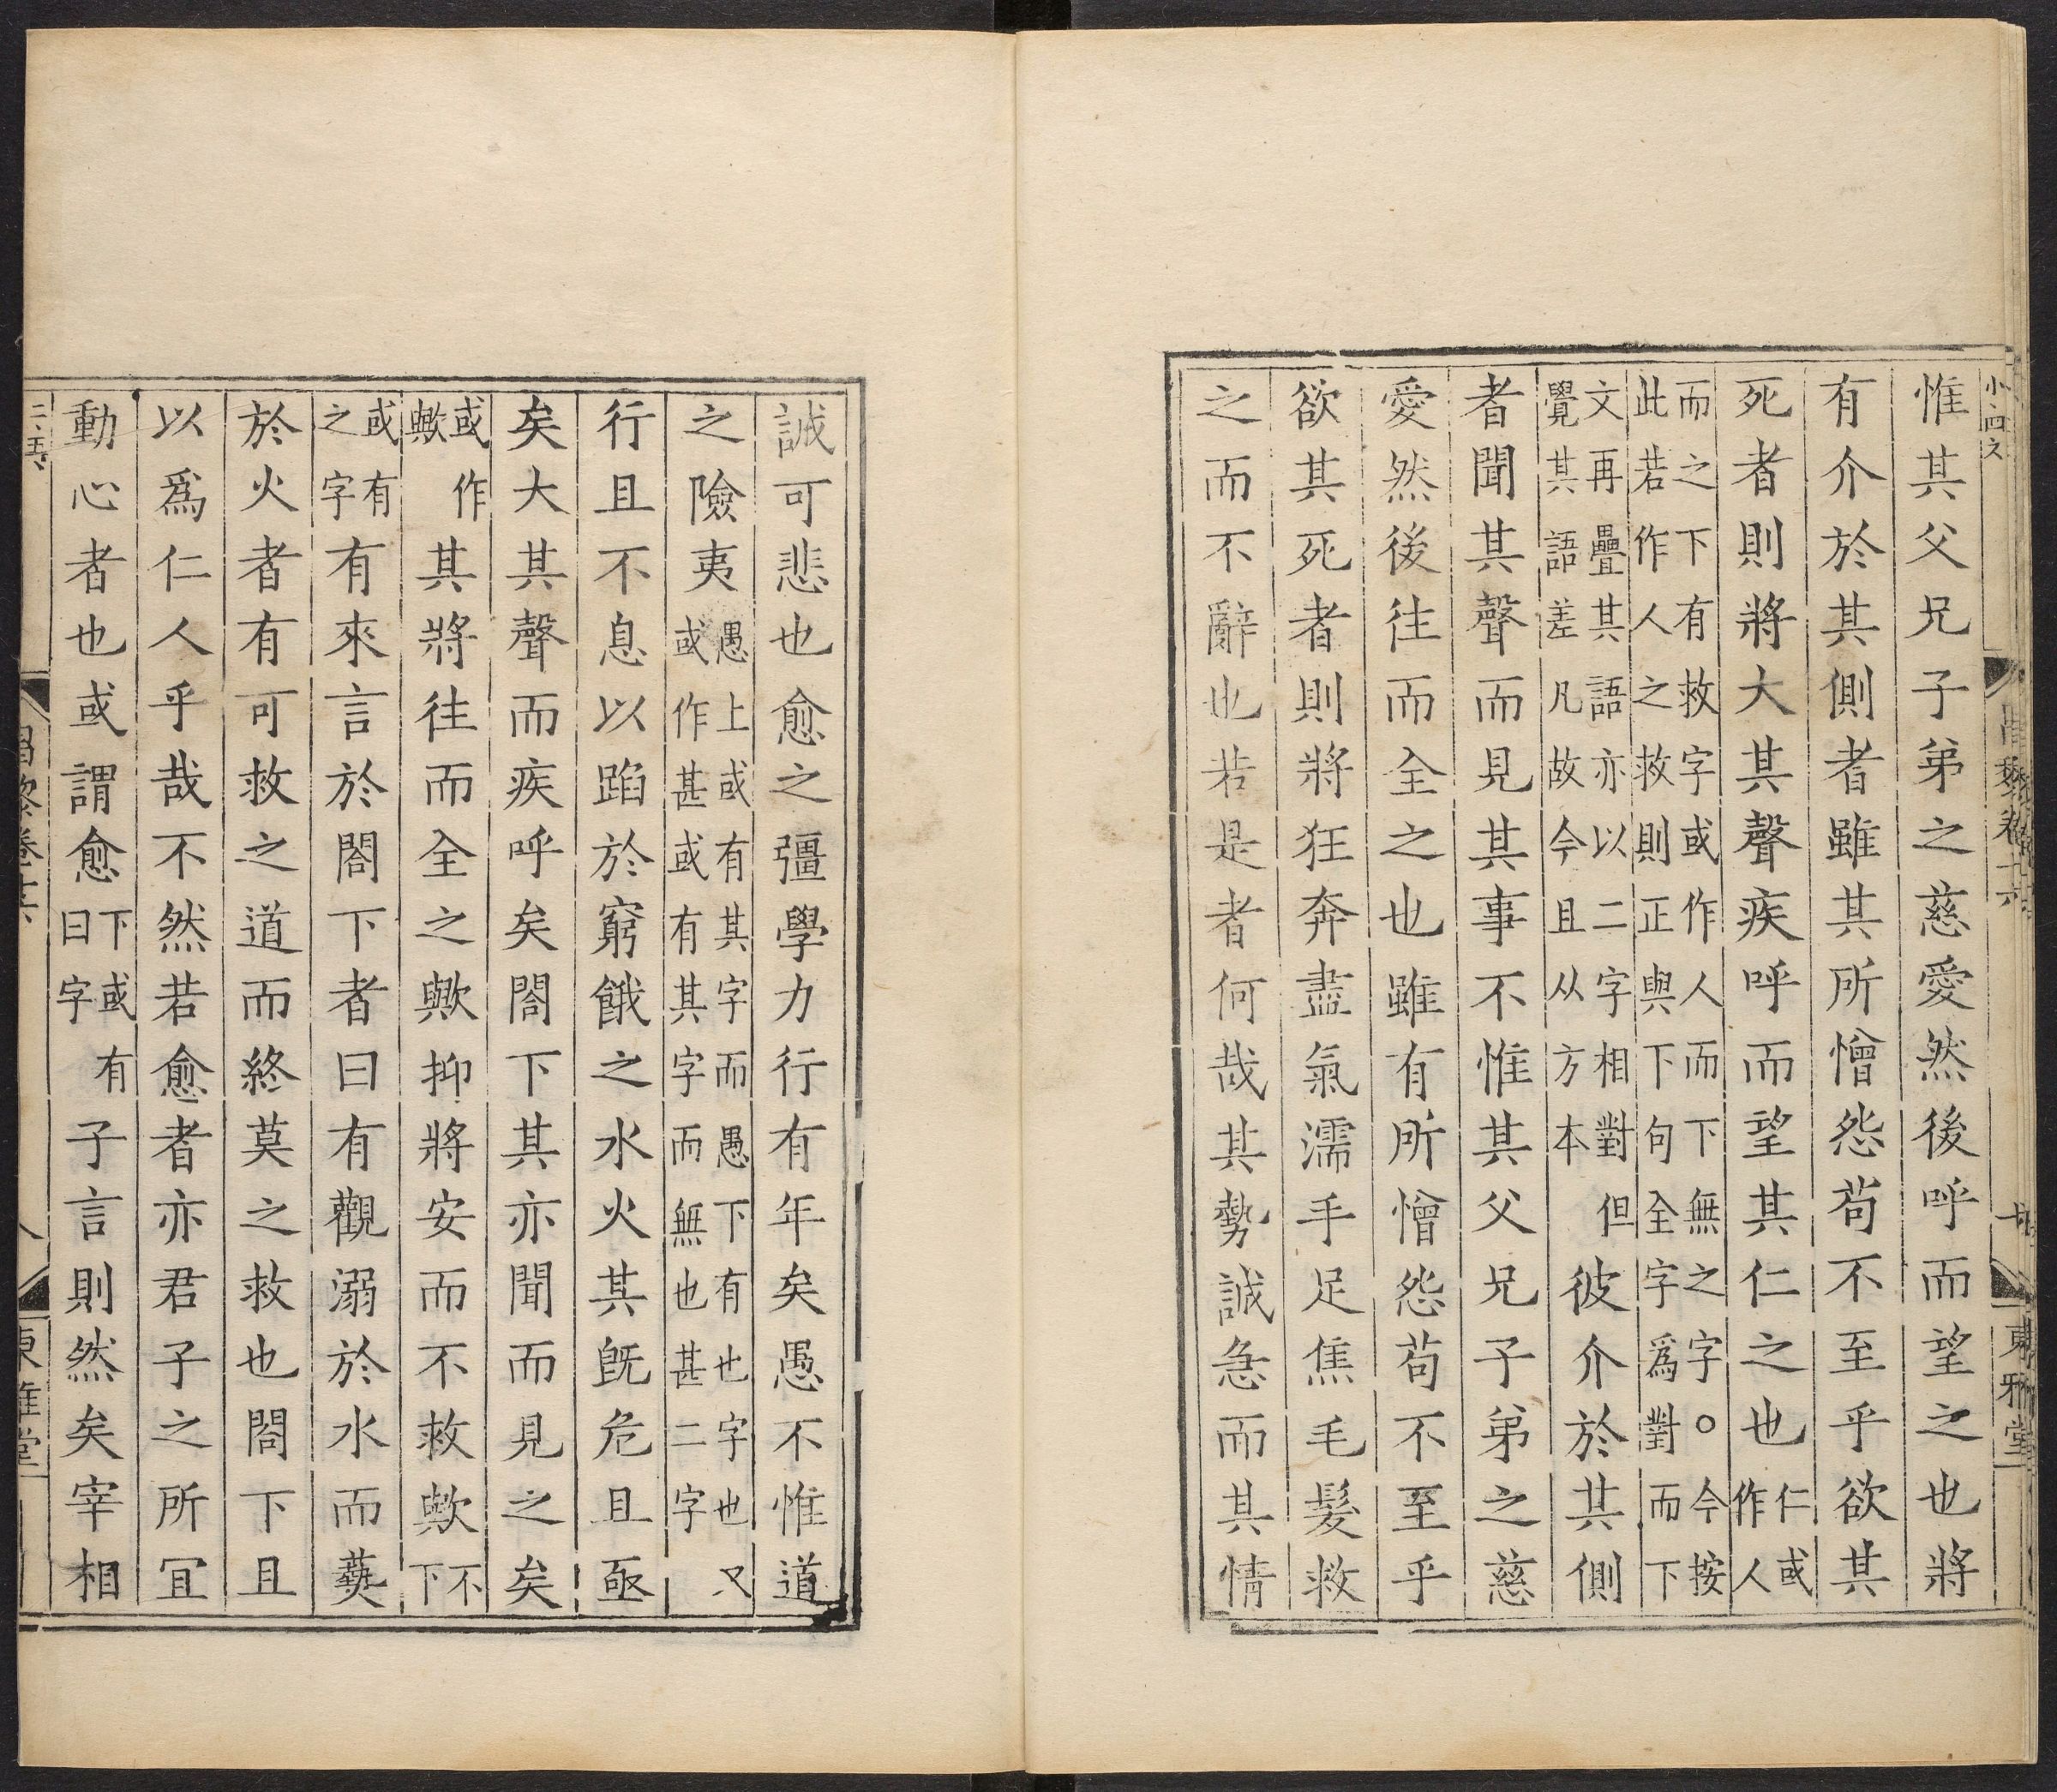 小四之
昌黎卷十六
東雅堂
惟其父兄子弟之慈愛然後呼而望之也將
有介於其側者雖其所憎怨苟不至乎欲其
死者則將大其聲疾呼而望其仁之也仁或作人
而之下有救字或作人而下無之字○今按
此若作人之救則正與下句全字爲對而下
文再疊其語亦以二字相對但
覺其語差凡故今且从方本
彼介於其側
者聞其聲而見其事不惟其父兄子弟之慈
愛然後往而全之也雖有所憎怨苟不至乎
欲其死者則將狂奔盡氣濡手足焦毛髮救
之而不辭也若是者何哉其勢誠急而其情
誠可悲也愈之彊學力行有年矣愚不惟道
之險夷
愚上或有其字而愚下有也字也又
或作甚或有其字而無也甚二字
行且不息以蹈於窮餓之水火其旣危且亟
矣大其聲而疾呼矣閤下其亦聞而見之矣
或作歟其將往而全之歟抑將安而不救歟不下
或有之字有來言於閤下者曰有觀溺於水而爇
於火者有可救之道而終莫之救也閤下且
以爲仁人乎哉不然若愈者亦君子之所宜
動心者也或謂愈下或有曰字子言則然矣宰相
昌黎卷十六
八
東雅堂